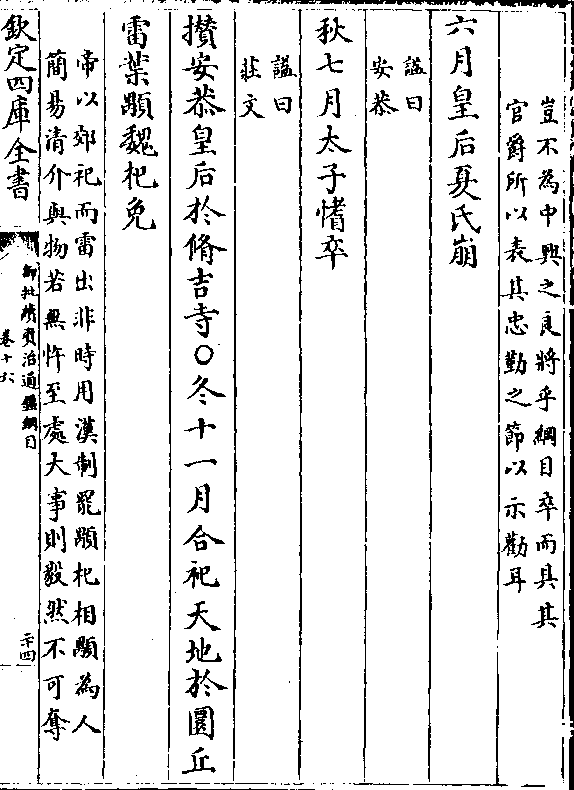 豈不為中興之良將乎綱目卒而具其
官爵所以表其忠勤之節以示勸耳
六月皇后夏氏崩
諡曰
安恭
秋七月太子愭卒
諡曰
莊文
攢安恭皇后於脩吉寺○冬十一月合祀天地於圜丘
雷葉顒魏杞免
帝以郊祀而雷出非時用漢制罷顒杞相顒為人
簡易清介與物若無忤至處大事則毅然不可奪
欽定四庫全書
御批續資治通鑑綱目
卷十六
二十四